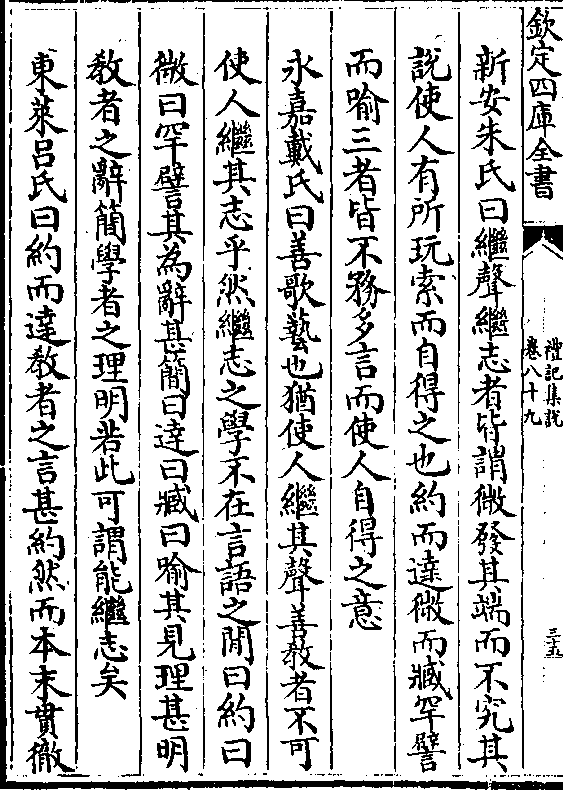 欽定四庫全書
禮記集說
卷八十九
三十五
新安朱氏曰繼聲繼志者皆謂微發其端而不究其
說使人有所玩索而自得之也約而達微而臧罕譬
而喻三者皆不務多言而使人自得之意
永嘉戴氏曰善歌藝也猶使人繼其聲善教者不可
使人繼其志乎然繼志之學不在言語之間曰約曰
微曰罕譬其為辭甚簡曰達曰臧曰喻其見理甚明
教者之辭簡學者之理明若此可謂能繼志矣
東萊呂氏曰約而達教者之言甚約然而本末貫徹